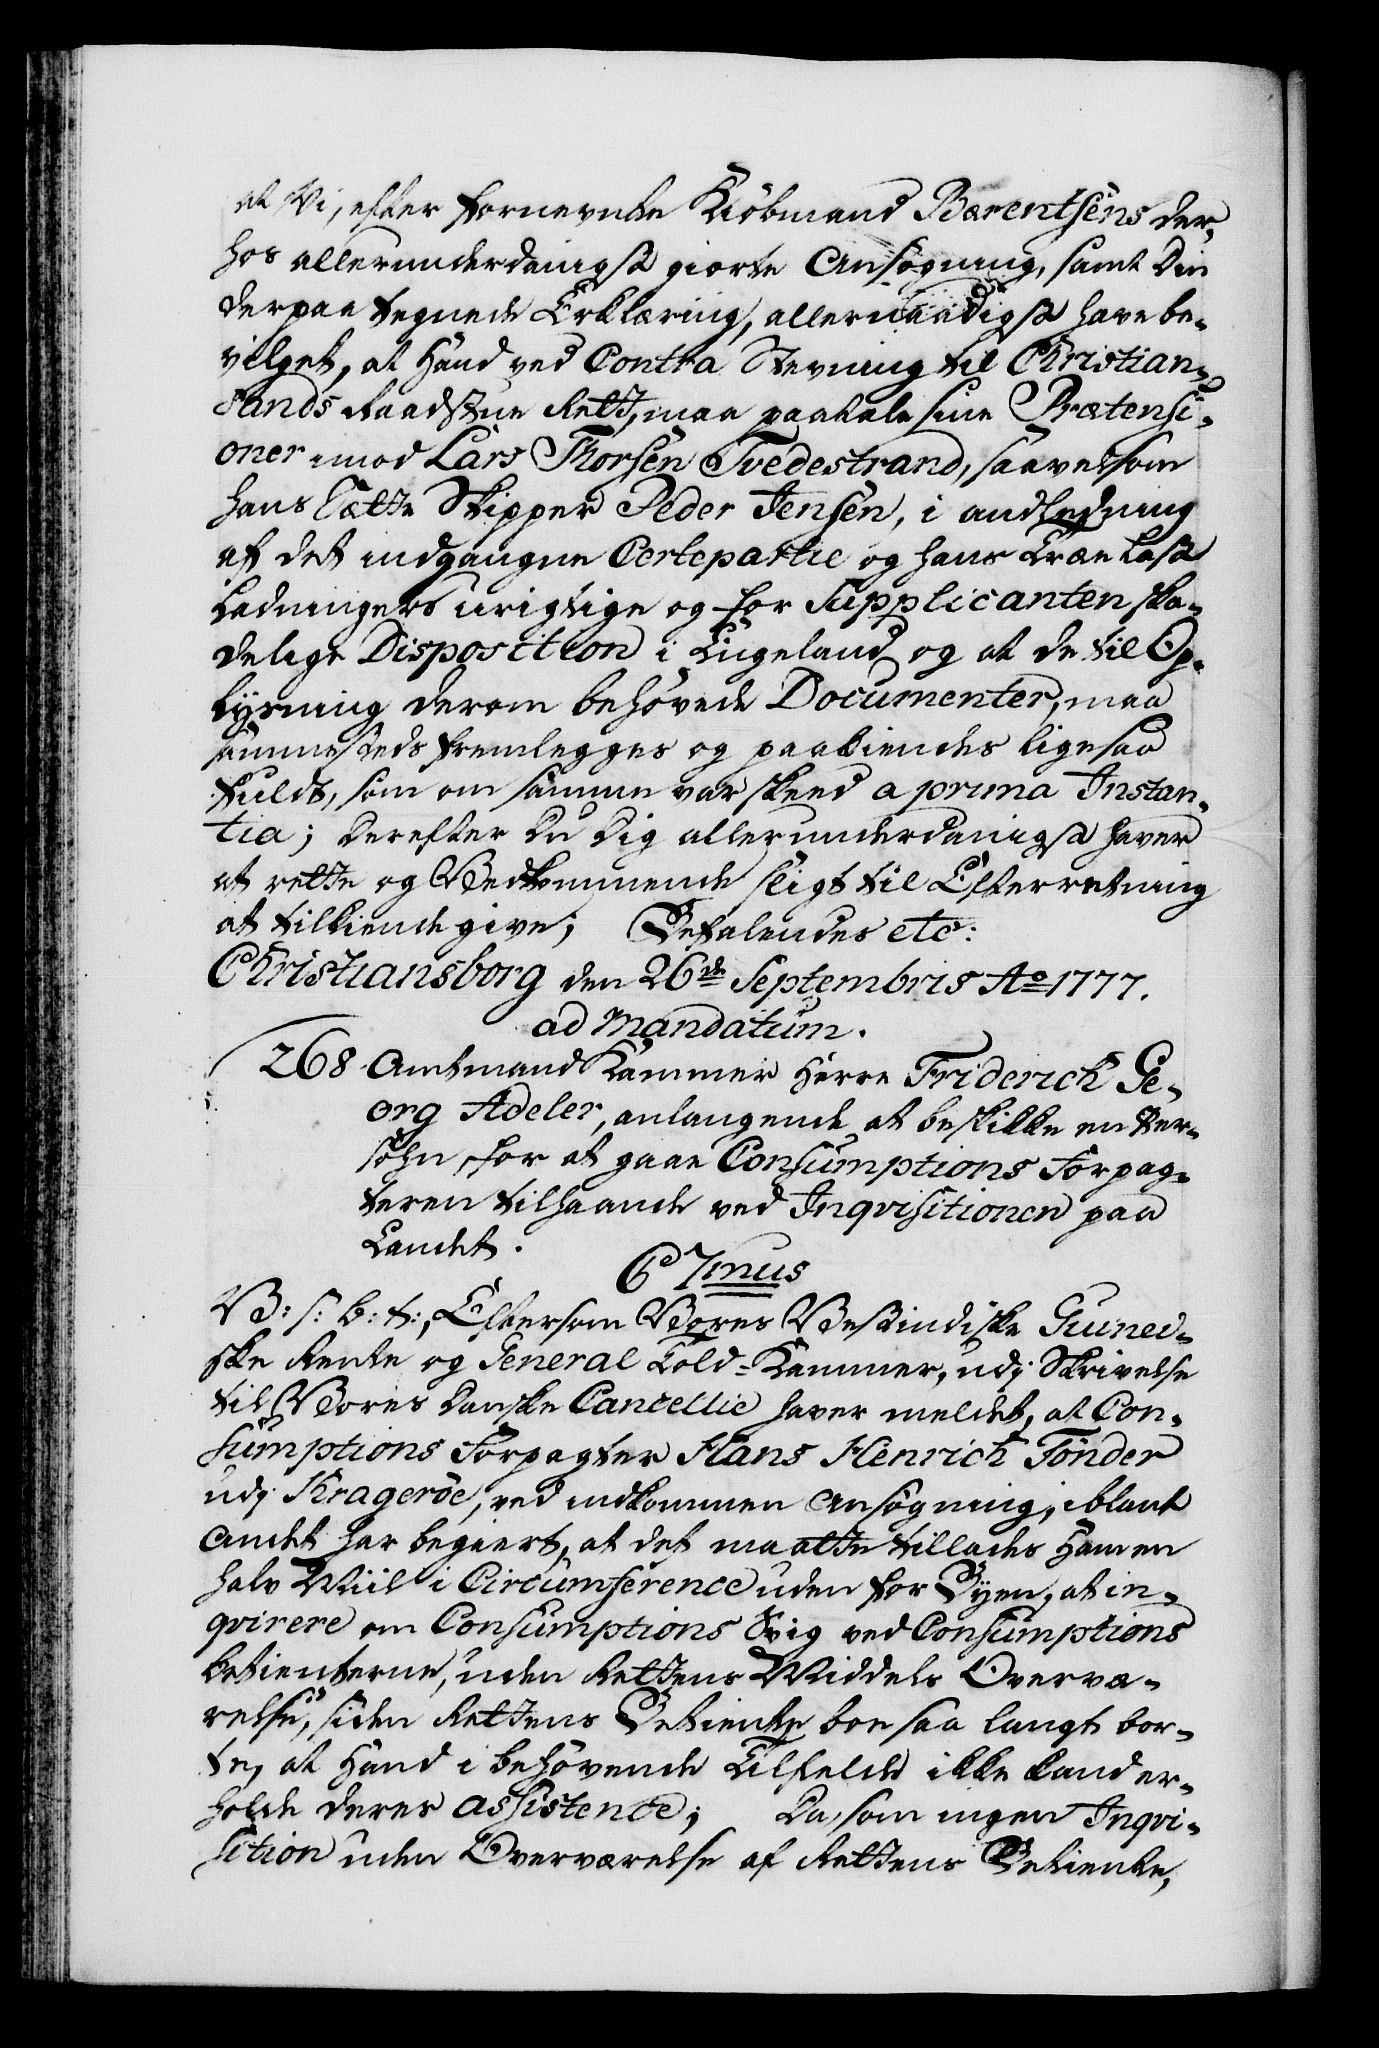 at Vi, efter fornevnte Kiöbmand Bærentsens der,
hos allerunderdanigst giorte Ansøgning, samt Din
derpaa tegnede Erklæring, allernaadigst have be-
vilget, at Hand ved Contra Stevning til Christian-
sands Raadstue Rett, maa paatale sine Prætensi-
oner imod Lars Thorsen Tvedestrand, saavelsom
hans satte Skipper Peder Jensen, i andledning
af det indgangne Certepartie og hans Træe Last
Ladningers urigtige og for Supplicanten ska-
delige Disposition i Engeland og at de til Op-
lysning derom behøvede Documenter, maa
sammesteds fremlegges og paakiendes ligesaa
fuldt, som om samme var skeed a prima Instan-
tia; Derefter Du Dig allerunderdanigst haver
at rette og Vedkommende sligt til Efterretning
at tilkiende give; Befalendes etc:
Christiansborg den 26de Septembris Ao 1777.
ad Mandatum.
268 Amtmand Kammer Herre Friderich Ge-
org Adeler, anlangende at beskikke en Per-
sohn, for at gaae Consumptions Forpag-
teren tilhaande ved Inqvisitionen paa
Landet.
C 7mus
V: s: b: t:, Eftersom Vores Vestindiske Guinei-
ske Rente og General Told-Kammer, udj Skrivelse
til Vores Danske Cancellie haver meldet, at Con-
sumptions Forpagter Hans Henrich Tönder
udj Krageröe, ved indkommen Ansøgning, iblant
Andet har begiert, at det maatte tillades Ham en
halv Miil i Circumference uden for Byen, at in-
qvirere om Consumptions Svig ved Consumptions
betienterne, uden Rettens Middels Overvæ-
relse, siden Rettens Betiente boe saa langt bor-
te, at Hand i behøvende Tilfælde ikke kand er-
holde deres assistence; Da, som ingen Inqvi-
sition uden Overværelse af Rettens Betiente,